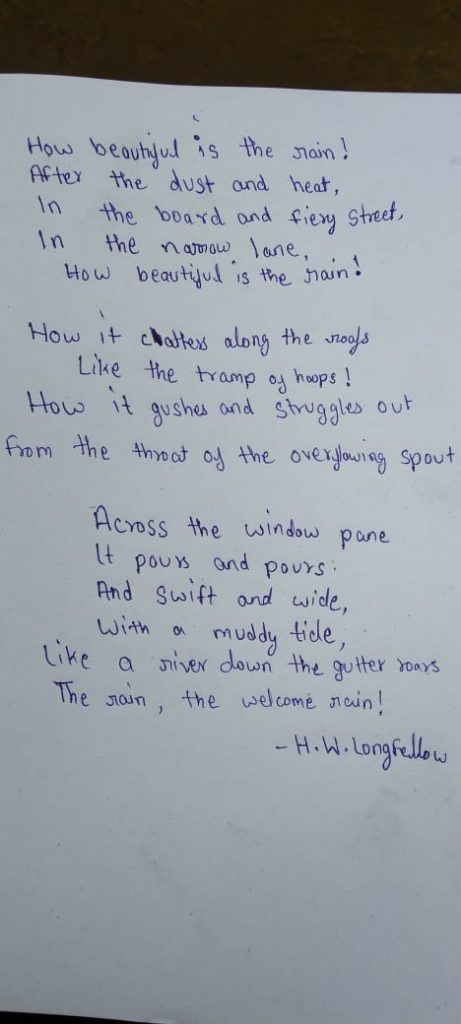 How beautiful is the rain!
After the dust and heat,
In the board and fiery street,
In the narrow lane,
How beautiful is the rain!
How it chatters along the roofs
Like the tramp of hoops!
How it gushes and struggles out
from the throat of the overflowing spout
Across the window pane
It pours and pours:
And swift and wide,
With a muddy tide,
Like a river down the gutter roars
The rain, the welcome rain!
- H.W. Longfellow